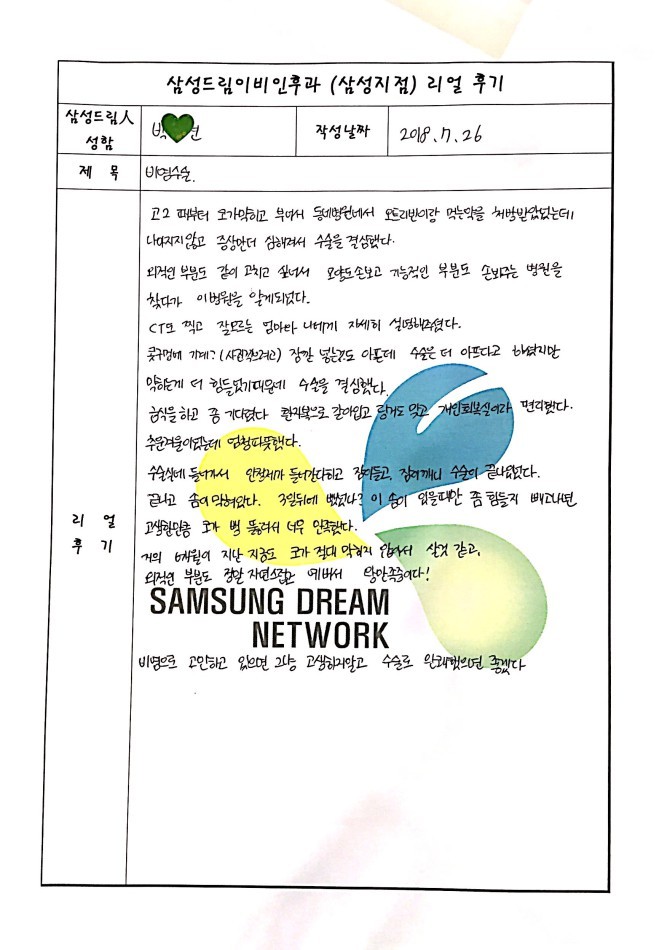 삼성드림이비인후과 (삼성지점) 리얼 후기
삼성드림人 성함
작성날짜
2018.7.26
제 목
비염수술.
리 얼
후 기
고2 때부터 코가막히고 부어서 동네병원에서 오트리빈이랑 먹는약을 처방받았었는데
나아지지않고 증상만더 심해져서 수술을 결심했다.
외적인 부분도 같이 고치고 싶어서 모양도손보고 기능적인 부분도 손봐주는 병원을
찾다가 이병원을 알게되었다.
CT도 찍고 잘모르는 엄마와 나에게 자세히 설명해주셨다.
콧구멍에 기계? 잠깐 넣는것도 아픈데 수술은 더 아프다고 하셨지만
막히는게 더 힘들었기때문에 수술을 결심했다.
금식을하고 좀 기다렸다 환자복으로 갈아입고 링거도 맞고 개인회복실이라 편리했다.
추운겨울이었는데 엄청따뜻했다.
수술실에 들어가서 안정제가 들어간다하고 잠이들고, 잠이깨니 수술이 끝나있었다.
끝나고 솜이 막혀있다. 3일뒤에 뺐었나? 이 솜이 있을때만 좀 힘들지 빼고나면
고생한만큼 코가 뻥 뚫려서 너무 만족했다.
거의 6개월이 지난 지금도 코가 절대 막히지 않아서 살것 같고,
외적인 부분도 정말 자연스럽고 예뻐서 왕만족중이다!
SAMSUNG DREAM
NETWORK
비염으로 고민하고 있으면 그냥 고생하지말고 수술로 완쾌했으면 좋겠다